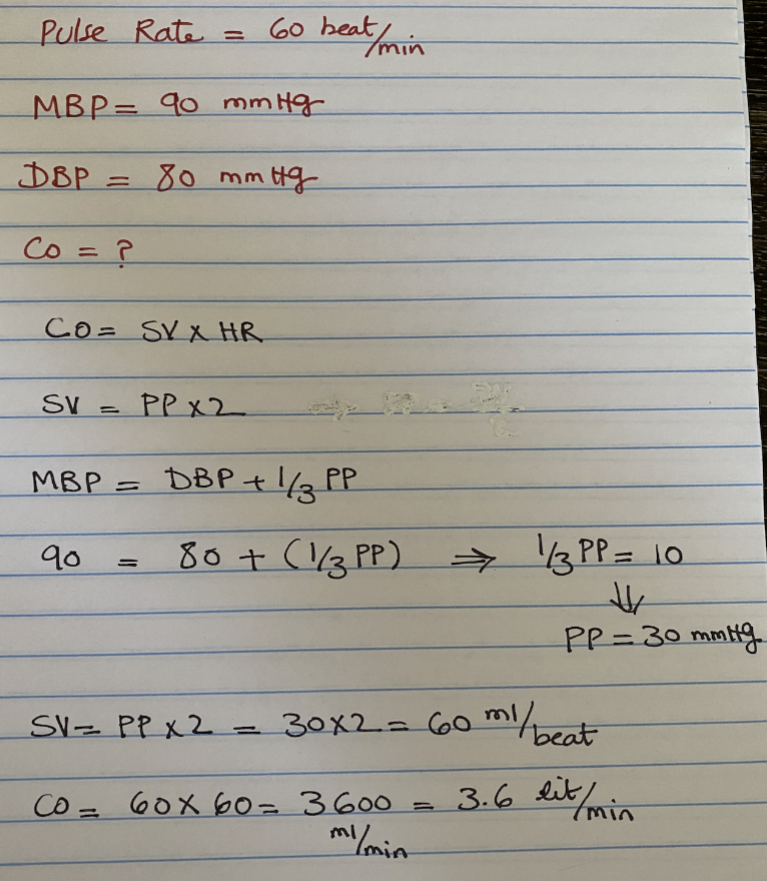 Pulse Rate = 60 beat/min
MBP = 90 mmHg
DBP = 80 mmHg
CO = ?
CO = SV x HR
SV = PP x 2
MBP = DBP + 1/3 PP
90 = 80 + (1/3 PP) ⇒ 1/3 PP = 10
⇓
PP = 30 mmHg
SV = PP x 2 = 30 x 2 = 60 ml/beat
CO = 60 x 60 = 3600 ml/min = 3.6 lit/min